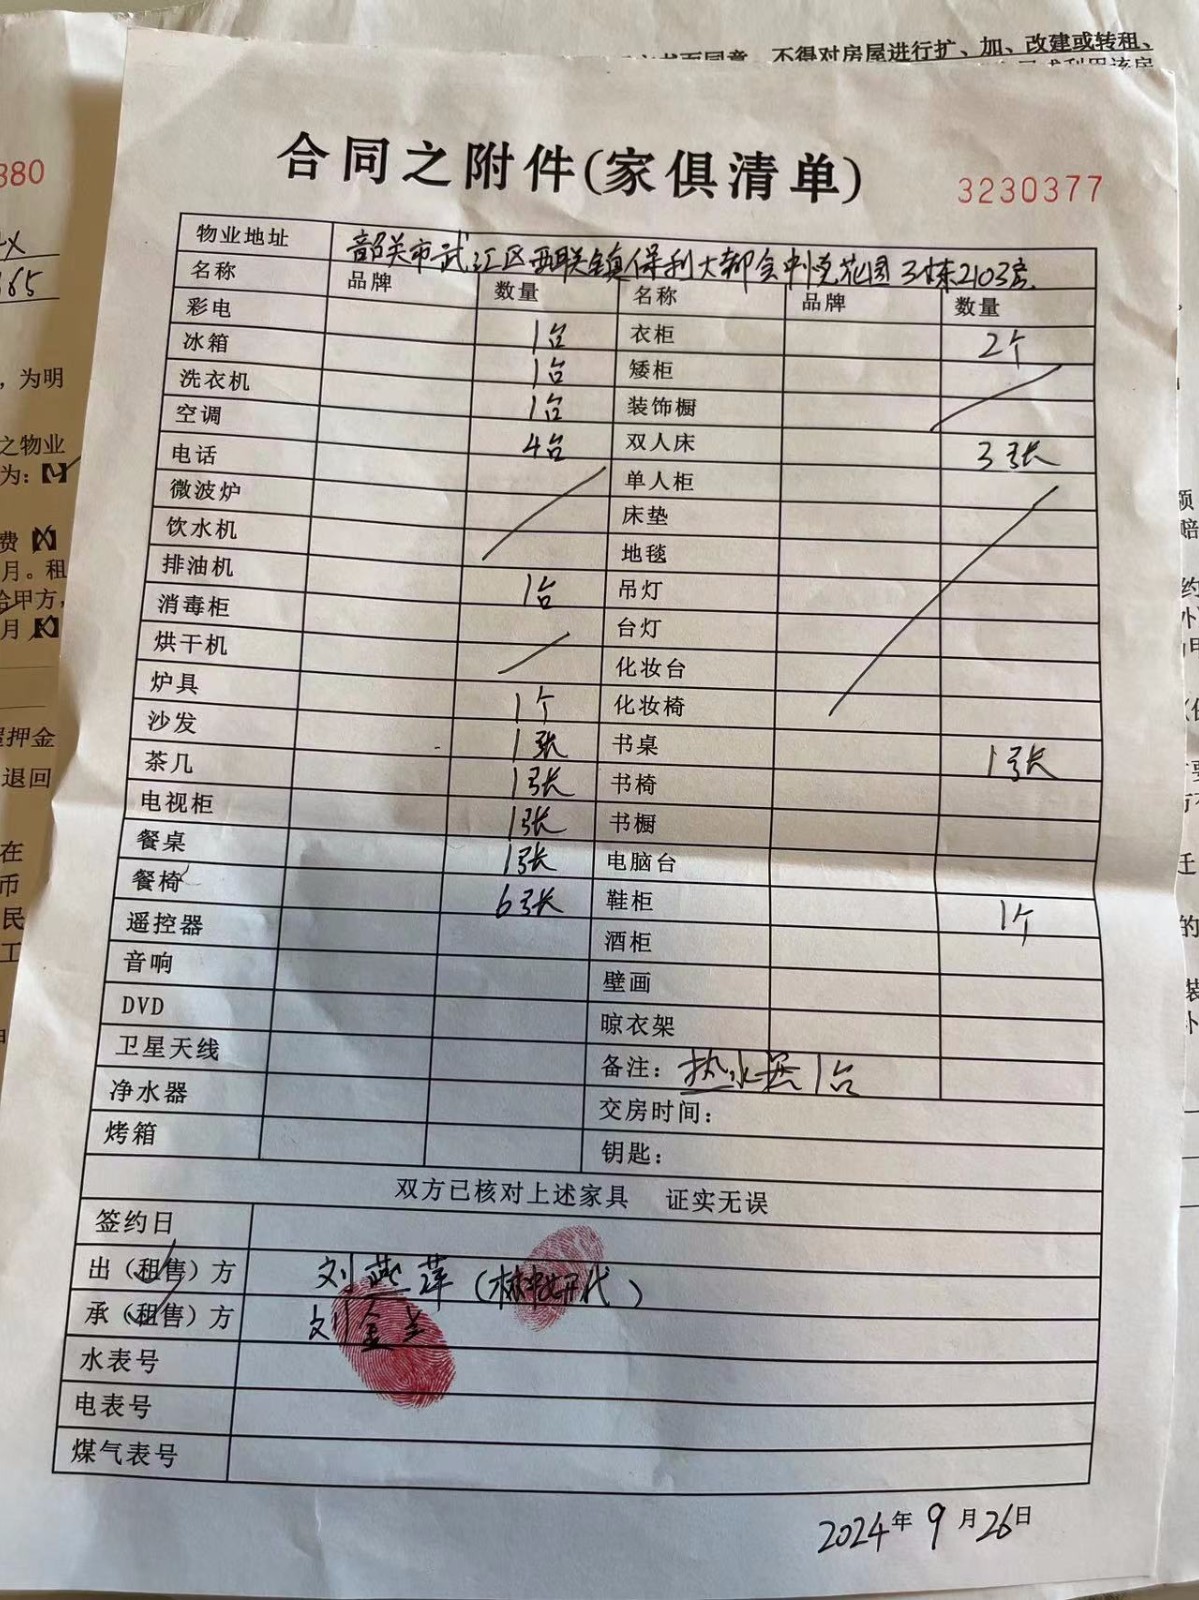 书面同意，不得对房屋进行扩、加、改建或转租、
合同之附件(家俱清单)
3230377
物业地址 韶关市武江区西联镇保利大都会时光花园3栋2103房
名称 品牌 数量 名称 品牌 数量
彩电 1台 衣柜 2个
冰箱 1台 矮柜
洗衣机 1台 装饰橱
空调 4台 双人床 3张
电话 单人柜
微波炉 床垫
饮水机 地毯
排油机 1台 吊灯
消毒柜 台灯
烘干机 化妆台
炉具 1个 化妆椅
沙发 1张 书桌 1张
茶几 1张 书椅
电视柜 1张 书橱
餐桌 1张 电脑台
餐椅 6张 鞋柜 1个
遥控器 酒柜
音响 壁画
DVD 晾衣架
卫星天线 备注：热水器1台
净水器 交房时间：
烤箱 钥匙：
双方已核对上述家具 证实无误
签约日
出（租售）方 刘燕萍（代）
承（租售）方 刘金兰
水表号
电表号
煤气表号
2024年9月26日
380
365
，为明
之物业
为：
费
月。租
给甲方，
月
押金
退回
在
币
民
工